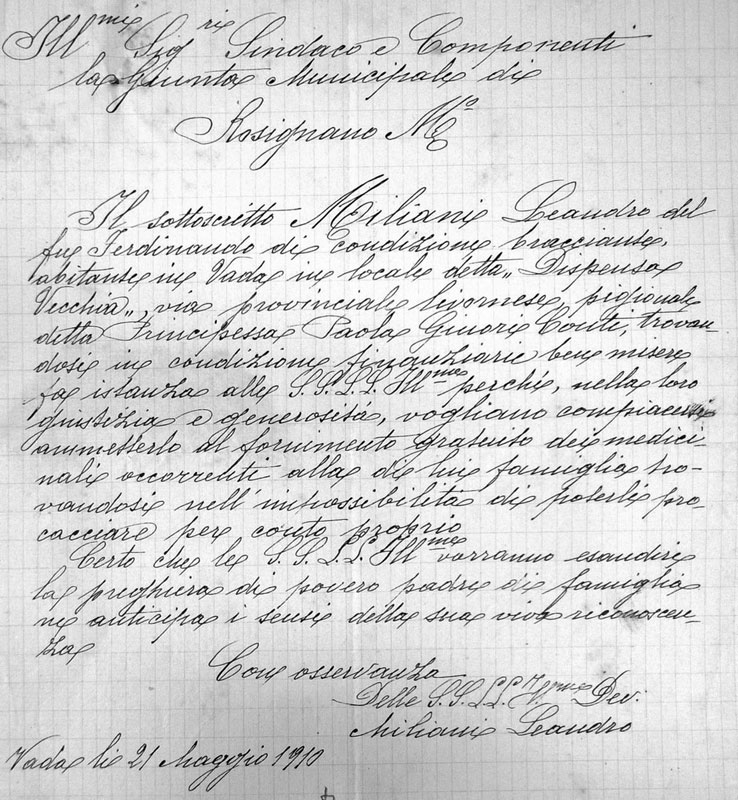 Ill^mi Sig^ri Sindaco e Componenti
la Giunta Municipale di
Rosignano M^o
Il sottoscritto Miliani Leandro del
fu Ferdinando di condizione bracciante,
abitante in Vada in locale detta „ Dispensa
Vecchia „, via provinciale livornese, pigionale
detta Principessa Paola Ginori Conti, trovan-
dosi in condizioni finanziarie ben misere
fa istanza alle S.S.L.L. Ill^me perché, nella loro
giustizia e generosità, vogliano compiacersi
ammetterlo al fornimento gratuito dei medici
nali occorrenti alla di lui famiglia tro-
vandosi nell'impossibilità di poterli pro-
cacciare per conto proprio
Certo che le S.S.L.L. Ill^me vorranno esaudire
la preghiera di povero padre di famiglia
ne anticipa i sensi della sua viva riconoscen-
za
Con osservanza
Delle S.S.L.L. Ill^me Dev:
Miliani Leandro
Vada li 21 Maggio 1910